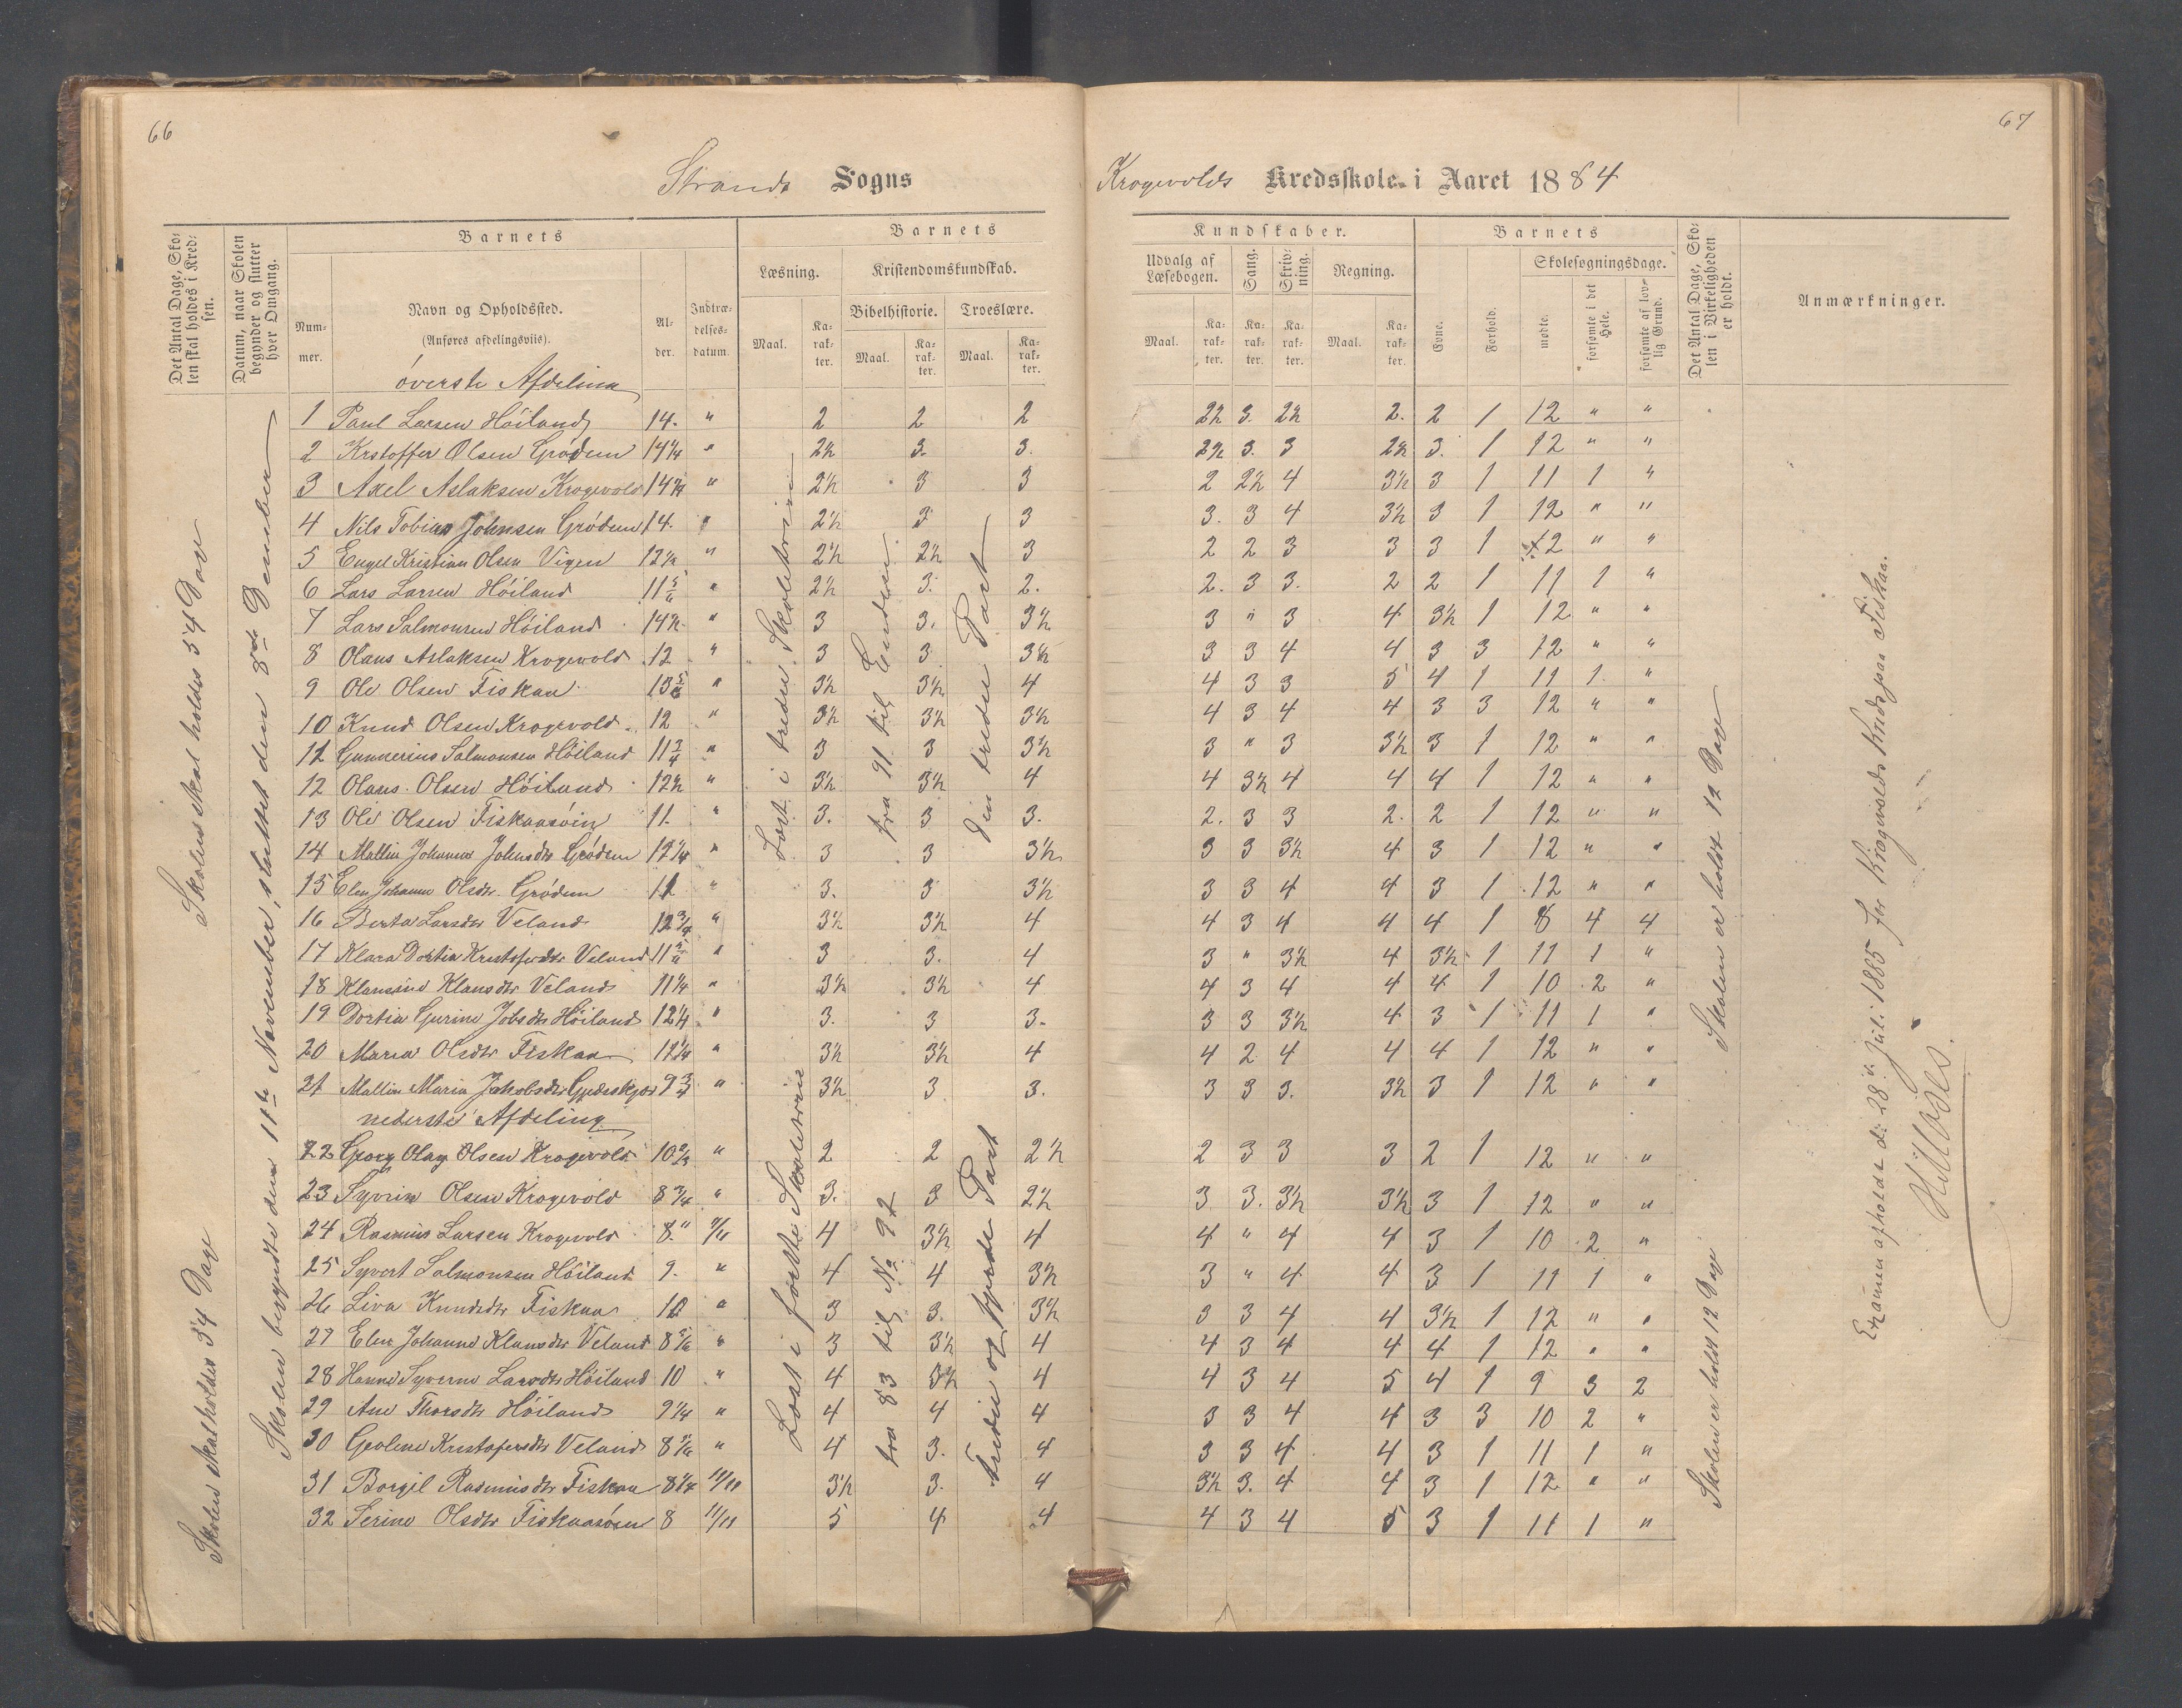 66
67
Strands Sogns
Krogevolds Kredsskole i Aaret 1884
Det Antal Dage, Skolen skal holdes i Kredsen.
Datum, naar Skolen begynder og slutter hver Omgang.
Barnets
Barnets
Kundskaber.
Barnets
Det Antal Dage, Skolen i Virkeligheden er holdt.
Anmærkninger.
Nummer.
Navn og Opholdssted.
(Anføres afdelingsviis).
Alder.
Indtrædelsesdatum.
Læsning.
Kristendomskundskab.
Bibelhistorie.
Troeslære.
Udvalg af Læsebogen.
Sang.
Skrivning.
Regning.
Evne.
Forhold.
Skolesøgningsdage.
mødte.
forsømte i det Hele.
forsømte af lovlig Grund.
Maal. Karakter. Maal. Karakter. Maal. Karakter.
Maal. Karakter. Karakter. Karakter. Maal. Karakter.
øverste Afdeling
1 Paul Larsen Höiland 14. " 2 2 2 2½ 3. 2½ 2. 2 1 12 " "
2 Krstoffer Olsen Grødem 14¼ " 2½ 3. 3. 2½ 3. 3 2½ 3. 1 12 " "
3 Axel Aslaksen Krogevold 14¾ " 2½ 3 3 2 2½ 4 3½ 3 1 11 1 "
4 Nils Tobias Johnsen Grødem 14. " 2½ 3 3 3. 3 4 3½ 3 1 12 " "
5 Engel Kristian Olsen Vigen 12½ " 2½ 2½ 3 2 2 3 3 3 1 12 " "
6 Lars Larsen Höiland 11 " 2½ 3. 2. 2. 3 3. 2 2 1 11 1 "
7 Lars Salmonsen Höiland 14½ " 3 3. 3½ 3 " 3 4 3½ 1 12 " "
8 Olaus Aslaksen Krogevold 12 " 3 3 3½ 3 3 4 4 3 3 12 " "
9 Ole Olsen Fiskaa 13 " 3½ 3½ 4 4 3 3 5 4 1 11 1 "
10 Knud Olsen Krogevold 12 " 3½ 3½ 3½ 4 3 4 4 3 3 12 " "
11 Gunnerius Salmonsen Höiland 11¾ " 3 3 3½ 3 " 3 3½ 3 1 12 " "
12 Olaus Olsen Höiland 12½ " 3½ 3½ 4 4 3½ 4 4 4 1 12 " "
13 Ole Olsen Fiskaasøen 11. " 3. 3 3. 2. 3 3 2. 2 1 12 " "
14 Mallin Johanna Johnsdtr Grødem 12¼ " 3 3 3½ 3 3 3½ 4 3 1 12 " "
15 Elen Johanna Olsdtr Grødem 11 " 3. 3 3½ 3 3 4 4 3 1 12 " "
16 Berta Larsdtr Veland 12¾ " 3½ 3½ 4 4 3 4 4 4 1 8 4 4
17 Klara Dortia Krestofersdtr Veland 11 " 3 3. 4 3 " 3½ 4 3½ 1 11 1 "
18 Klausine Klausdtr Veland 11¼ " 3½ 3½ 4 4 3 4 4 4 1 10 2 "
19 Dortia Gurine Jobsdtr Höiland 12¼ " 3. 3 3. 3 3 3½ 4 3 1 11 1 "
20 Maria Olsdtr Fiskaa 12¼ " 3½ 3½ 4 4 2 4 4 4 1 12 " "
21 Mallin Maria Jakobsdtr 9¾ " 3½ 3 3. 3 3 3. 3½ 3 1 12 " "
nederste Afdeling
22 Georg Olag Olsen Krogevold 10 " 2 2 2½ 2 3 3 3 2 1 12 " "
23 Syvrin Olsen Krogevold 8¾ " 3. 3 2½ 3 3. 3½ 3½ 3 1 12 " "
24 Rasmus Larsen Krogevold 8. 4 3½ 4 4 " 4 4 3 1 10 2 "
25 Syvert Salmonsen Höiland 9. " 4 4 3½ 3 " 4 4 3 1 11 1 "
26 Liva Knudsdtr Fiskaa 10 " 3 3. 3½ 3 3 4 4 3½ 1 12 " "
27 Elen Johanna Klausdtr Veland 8 " 3 3½ 4 4 3 4 4 4 1 12 " "
28 Hanna Syverine Larsdtr Höiland 10 " 4 3½ 4 4 3 4 5 4 1 9 3 2
29 Ane Thorsdtr Höiland 9¼ " 4 4 4 3 3 4 4 3 3 10 2 "
30 Goline Krestofersdtr Veland 8 " 4 3. 4 3 3 4 4 3 1 11 1 "
31 Borgil Rasmusdtr Fiskaa 8¼ 11/11 3½ 3. 4 3½ 3. 4 4 3 1 12 " "
32 Serine Olsdtr Fiskaasøen 8 11/11 5 4 4 4 3 4 5 3 1 11 1 "
Skolen skal holdes 54 Dage
Skolen skal holdes 54 Dage
Skolen begyndte den 11te November, sluttet den 8de December
Læst i tredie Skoletrin
fra 91 til Enden
Den tredie Part
Læst i første Skoletrin
fra 83 til No 92
tredie og fjerde Part
Skolen er holdt 12 Dage
Skolen er holdt 12 Dage
Examen afholdt d: 28 Juli 1885 for Krogevolds Kreds paa Fiskaa.